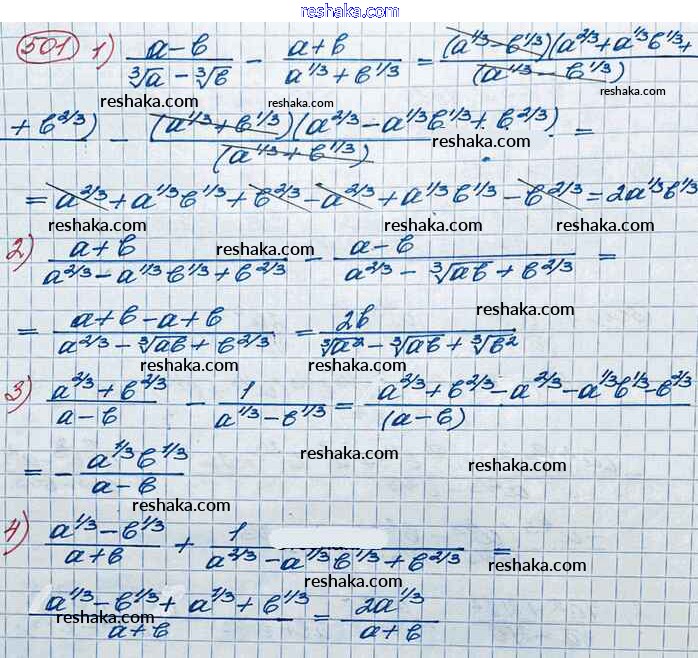 reshaka.com
501 1) (a-b)/(∛a - ∛b) - (a+b)/(a^1/3 + b^1/3) = (a^1/3 - b^1/3)(a^2/3 + a^1/3 b^1/3 + / (a^1/3 - b^1/3)
reshaka.com reshaka.com
+ b^2/3) - (a^1/3 + b^1/3)(a^2/3 - a^1/3 b^1/3 + b^2/3) / (a^1/3 + b^1/3) =
reshaka.com
= a^2/3 + a^1/3 b^1/3 + b^2/3 - a^2/3 + a^1/3 b^1/3 - b^2/3 = 2a^1/3 b^1/3
reshaka.com reshaka.com
2) (a+b)/(a^2/3 - a^1/3 b^1/3 + b^2/3) - (a-b)/(a^2/3 - ∛ab + b^2/3) =
reshaka.com
reshaka.com
= (a+b-a+b)/(a^2/3 - ∛ab + b^2/3) = 2b/(∛a² - ∛ab + ∛b²)
reshaka.com
3) (a^2/3 + b^2/3)/(a-b) - 1/(a^1/3 - b^1/3) = (a^2/3 + b^2/3 - a^2/3 - a^1/3 b^1/3 - b^2/3)/(a-b)
reshaka.com
= - a^1/3 b^1/3/(a-b)
reshaka.com reshaka.com
reshaka.com
4) (a^1/3 - b^1/3)/(a+b) + 1/(a^2/3 - a^1/3 b^1/3 + b^2/3) =
reshaka.com
reshaka.com
(a^1/3 - b^1/3 + a^1/3 + b^1/3)/(a+b) = 2a^1/3/(a+b)
reshaka.com reshaka.com